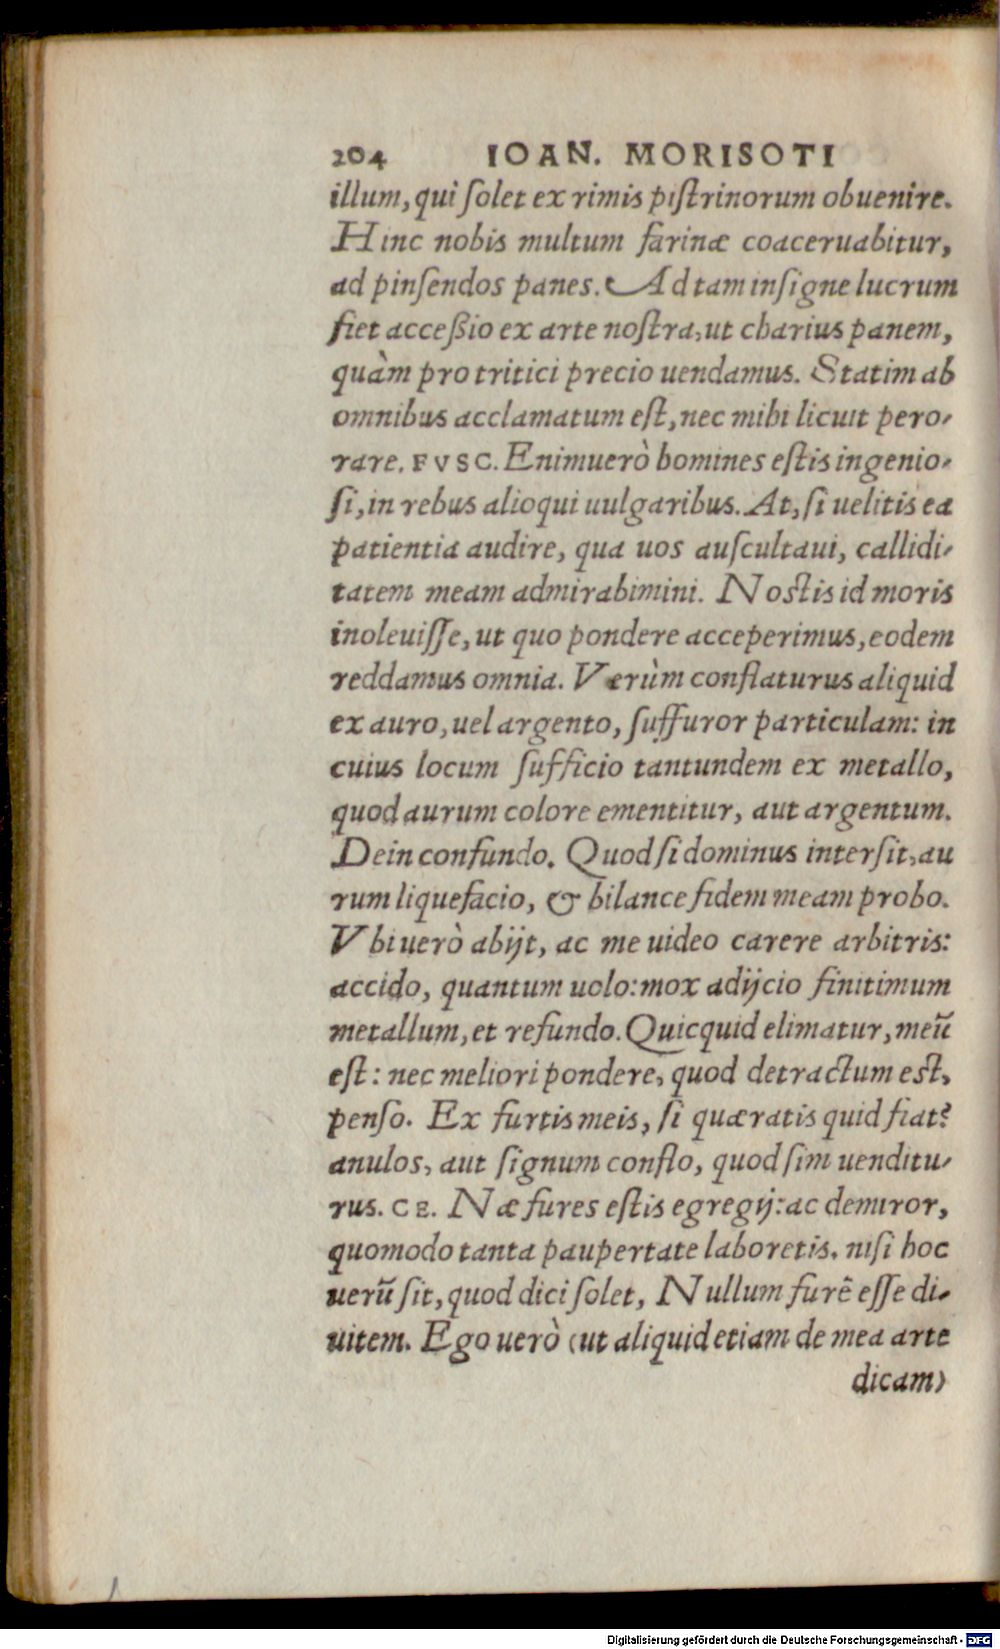 204 IOAN. MORISOTI
illum, qui solet ex rimis pistrinorum obuenire.
Hinc nobis multum farinæ coaceruabitur,
ad pinsendos panes. Ad tam insigne lucrum
fiet acceßio ex arte nostra, ut charius panem,
quàm pro tritici precio uendamus. Statim ab
omnibus acclamatum est, nec mihi licuit pero-
rare. FVSC. Enimuerò homines estis ingenio-
si, in rebus alioqui uulgaribus. At, si uelitis ea
patientia audire, qua uos auscultaui, callidi-
tatem meam admirabimini. Nostis id moris
inoleuisse, ut quo pondere acceperimus, eodem
reddamus omnia. Verùm conflaturus aliquid
ex auro, uel argento, suffuror particulam: in
cuius locum sufficio tantundem ex metallo,
quod aurum colore ementitur, aut argentum.
Dein confundo. Quod si dominus intersit, au
rum liquefacio, & bilance fidem meam probo.
Vbi uerò abijt, ac me uideo carere arbitris:
accido, quantum uolo: mox adijcio finitimum
metallum, et refundo. Quicquid elimatur, meũ
est: nec meliori pondere, quod detractum est,
penso. Ex furtis meis, si quæratis quid fiat?
anulos, aut signum conflo, quod sim uenditu-
rus. CE. Næ fures estis egregij: ac demiror,
quomodo tanta paupertate laboretis, nisi hoc
uerũ sit, quod dici solet, Nullum furẽ esse di-
uitem. Ego uerò (ut aliquid etiam de mea arte
dicam)
Digitalisierung gefördert durch die Deutsche Forschungsgemeinschaft - DFG